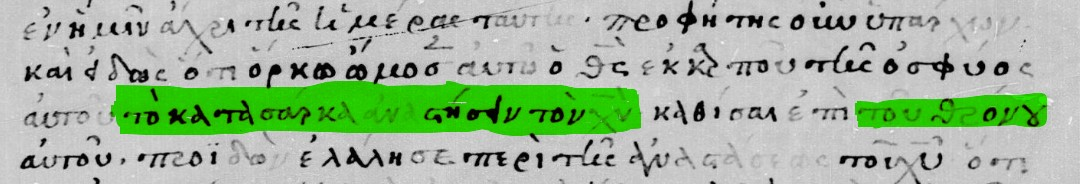 ἐν ἡμῖν ἄχρι τῆς ἡμέρας ταύτης· προφήτης οὖν ὑπάρχων
καὶ εἰδὼς ὅτι ὅρκῳ ὤμοσ αὐτῷ ὁ θς ἐκ κ που τῆς ὀσφύος
αὐτοῦ τὸ κατὰ σάρκα ἀναστήσειν τὸν χν καθίσαι ἐπὶ τοῦ θρόνου
αὐτοῦ· προϊδὼν ἐλάλησε περὶ τῆς ἀναστάσεως τοῦ χυ ὅτι